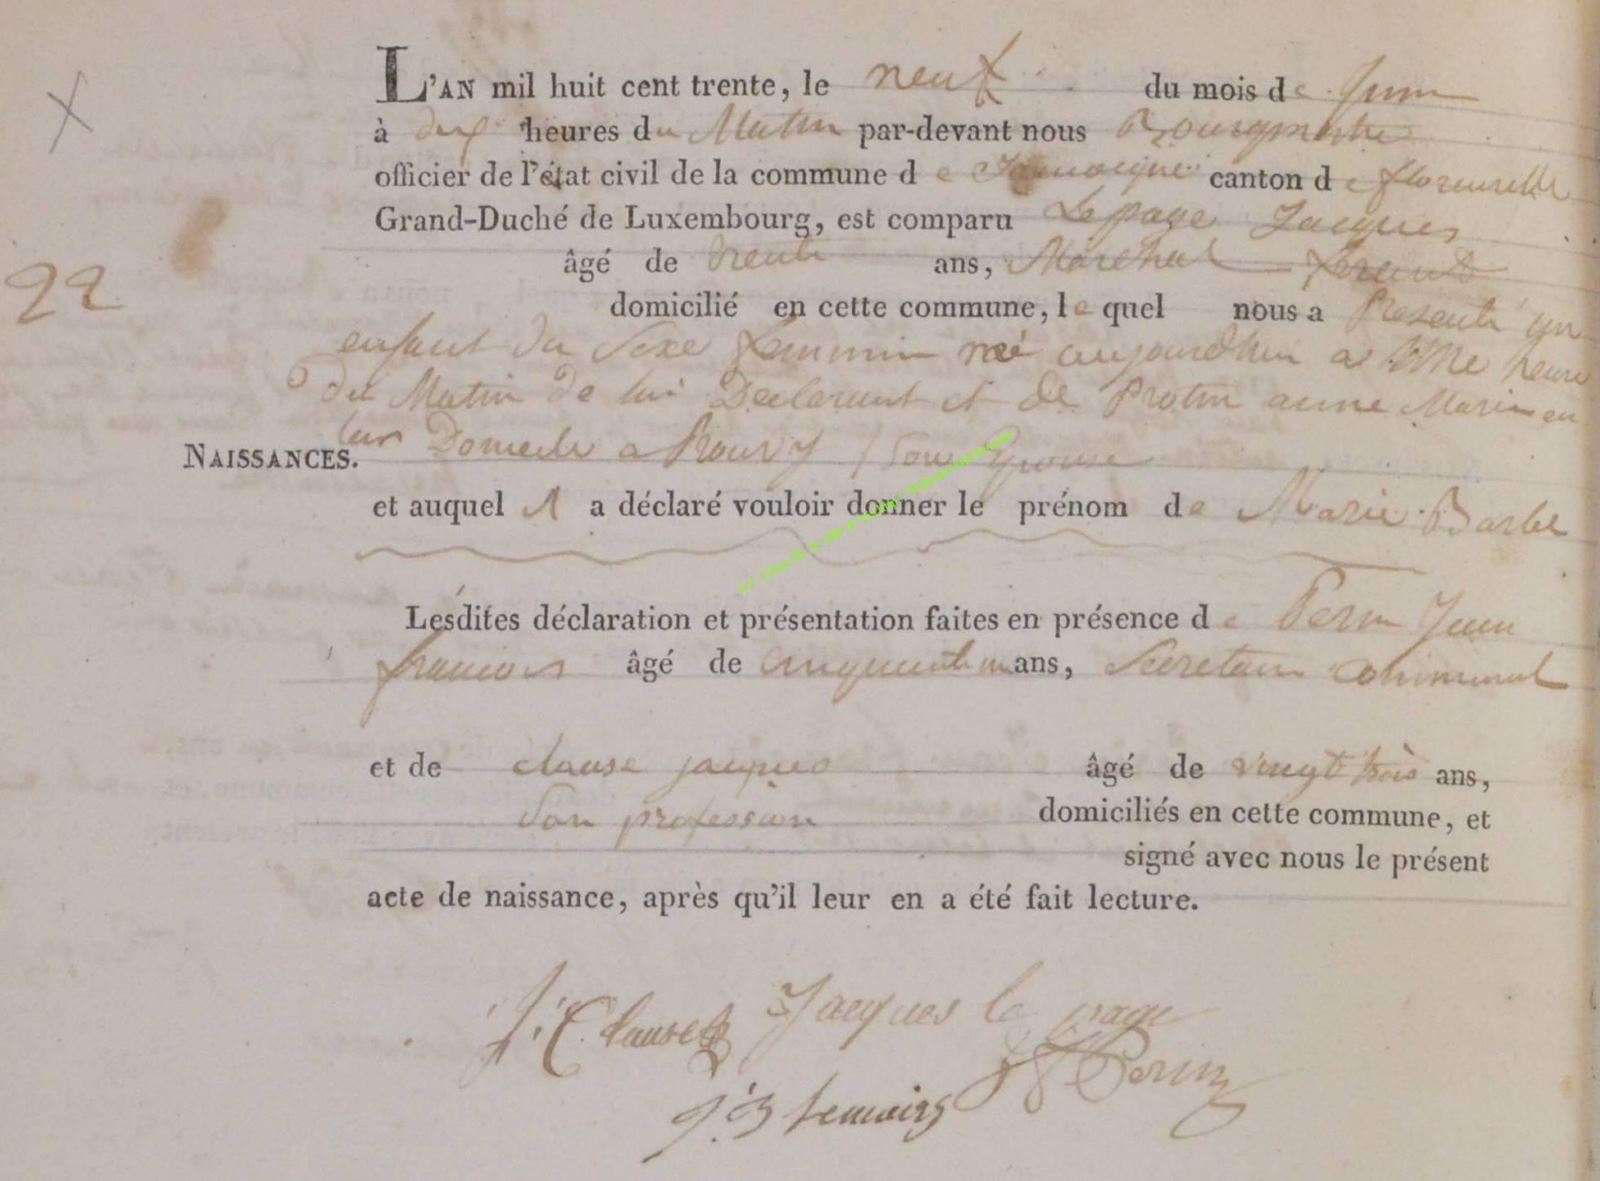 L'AN mil huit cent trente, le neuf du mois de Juin
à dix heures du Matin par-devant nous Bourgmestre
officier de l'état civil de la commune de Jamoigne canton de florenville
Grand-Duché de Luxembourg, est comparu Lepage Jacques
âgé de trente ans, Marechal ferant
22
domicilié en cette commune, le quel nous a Presenté un
enfant du Sexe feminin né aujourdhui a une heure
du Matin de lui Declarant et de Protin anne Marie en
leur Domicile a Rouvy / Son Epouse
NAISSANCES.
et auquel il a déclaré vouloir donner le prénom de Marie Barbe
Lesdites déclaration et présentation faites en présence de Perin Jean
francois âgé de cinquante un ans, Secretaire communal
et de clause jacques âgé de vingt trois ans,
San profession domiciliés en cette commune, et
signé avec nous le présent
acte de naissance, après qu'il leur en a été fait lecture.
J. Clause Jacques le page
Perin